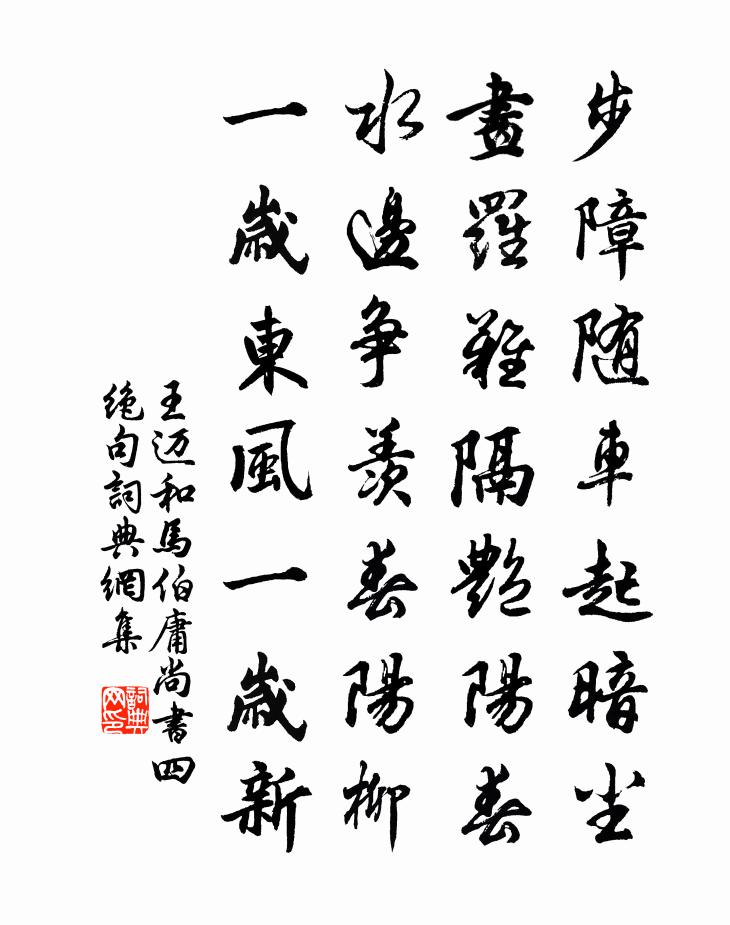 步障随車起暗尘
畫羅難隔艷陽春
水邊争羨春陽柳
一歲東風一歲新
王迈和馬伯庸尚書四
绝句詞典網集
詞典网印